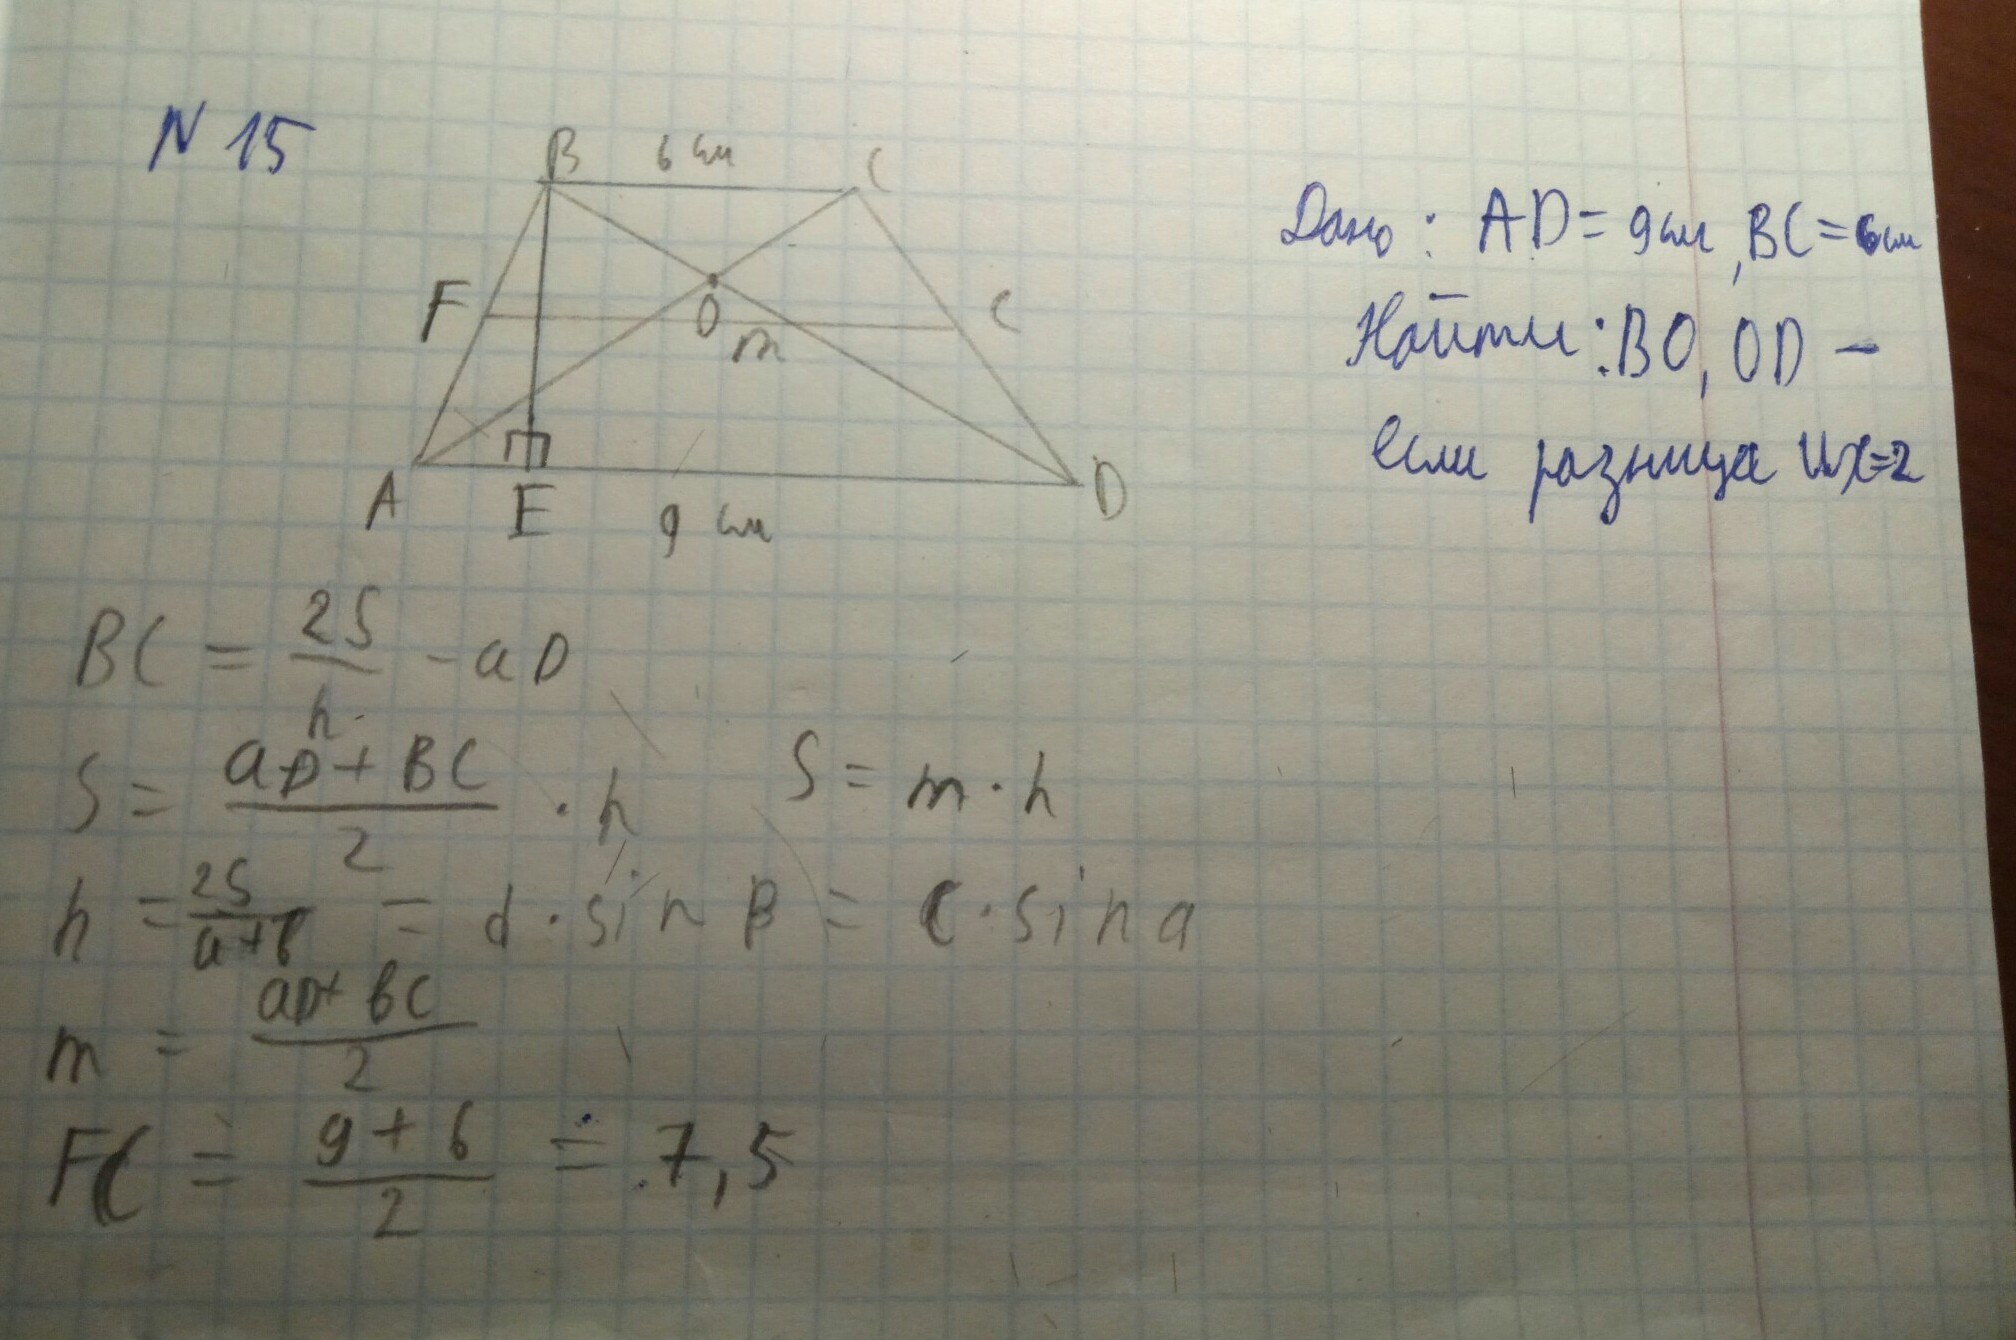 N 15
B 6 см C
F O m C
A E 9 см D
Дано: AD = 9см, BC = 6см
Найти: BO, OD –
если разница их=2
BC = 2S/h - aD
S = aD + BC/2 · h S = m · h
h = 2S/a+b = d · sin B = c · sin a
m = aD + BC/2
FC = 9 + 6/2 = 7,5